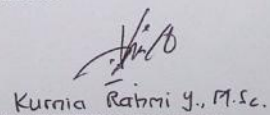 Kurnia Rahmi Y., M.Sc.